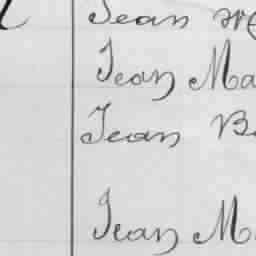 Jean
Jean Ma
Jean B
Jean M